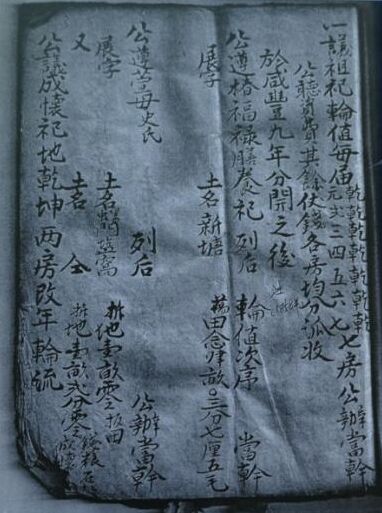 一議祖祀輪值每屆元文三四五六七七房公辦當幹
乾乾乾乾乾乾乾
公聽資費其餘伏錢各房均分派收
於咸豐九年分開之後
公遵椿福祿膳養祀列后 輪值次序 當幹
展字 土名新塘 田念肆畝三分七厘五毛
公遵萱母史氏 列后 公辦當幹
展字 土名 窩 拚地壹畝零
又 土名仝 拚地壹畝弍分零
公議成懷祀地乾坤兩房改年輪流